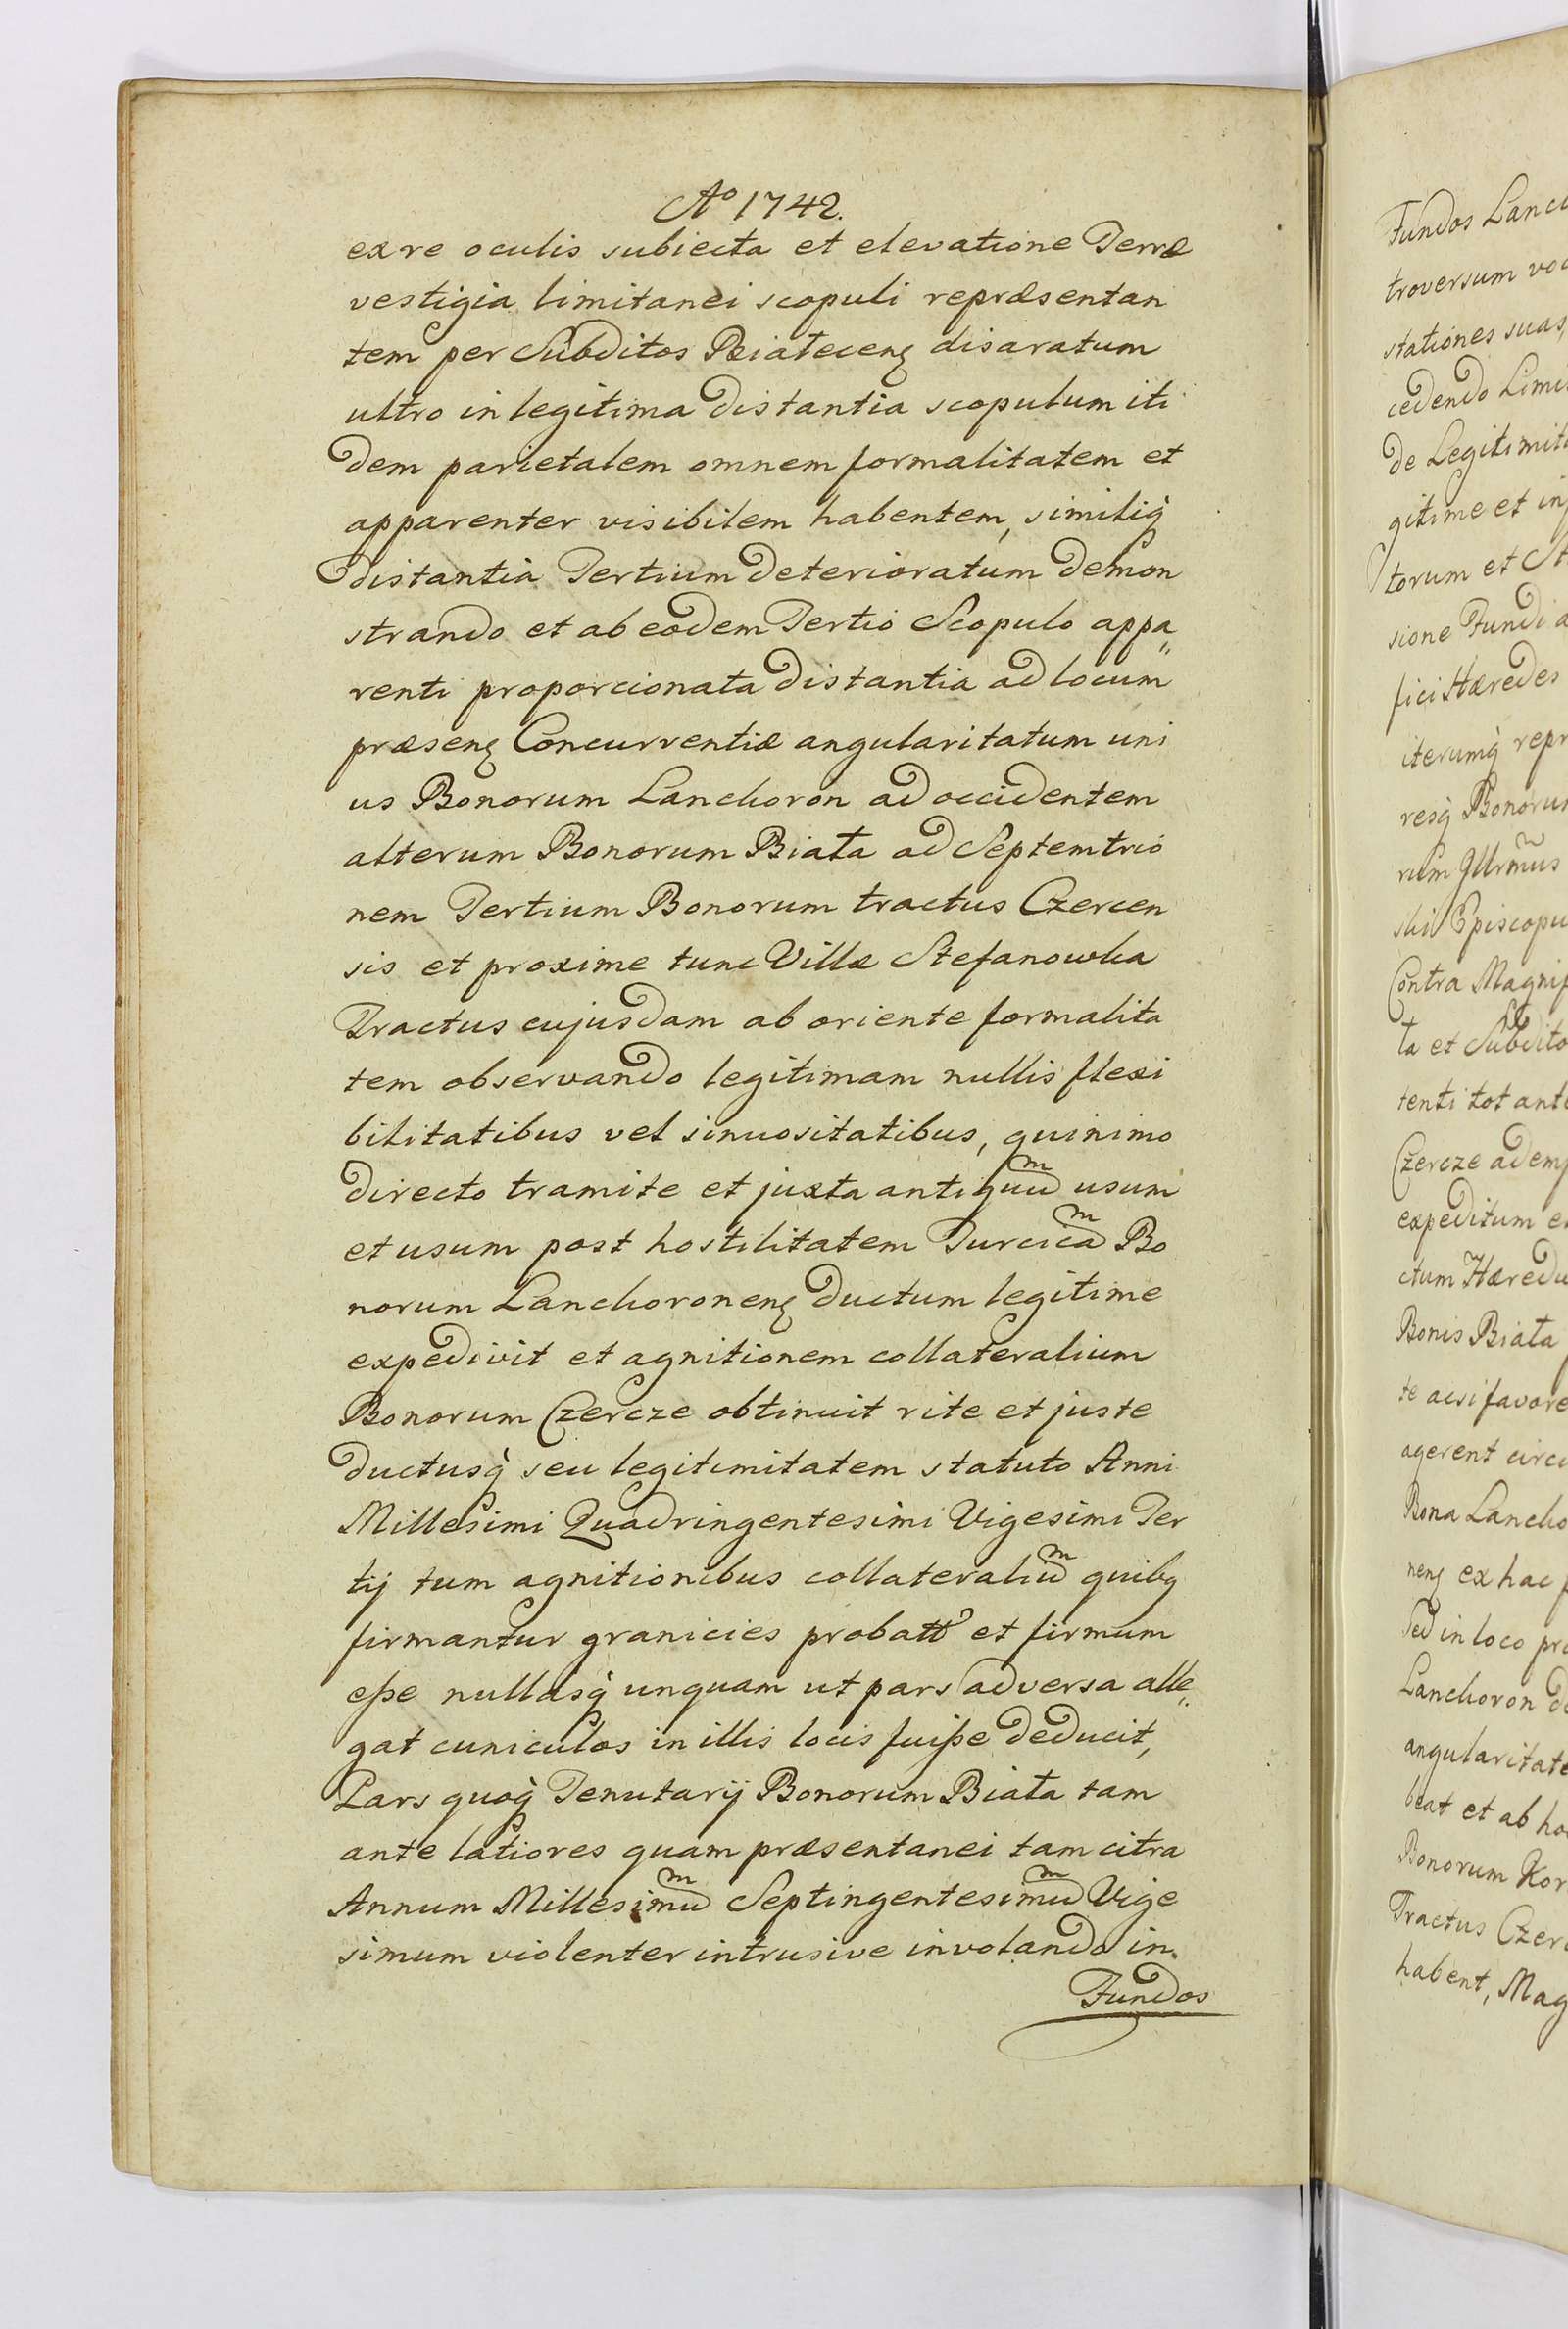 Aº 1742.
ex re oculis subiecta et elevatione Terræ
vestigia limitanei scopuli repræsentan
tem per Subditos Białecenq disaratum
ultro in legitima distantia scopulum iti
dem parietalem omnem formalitatem et
apparenter visibilem habentem, similiq̀
distantia Tertium deterioratum demon
strando et ab eodem Tertio Scopulo appa„
renti proporcionata distantia ad locum
præsenq Concurrentiæ angularitatum uni
us Bonorum Lanckoron ad occidentem
alterum Bonorum Biała ad Septemtrio
nem Tertium Bonorum tractus Czercen
sis et proxime tunc Villæ Stefanowka
Tractus cujusdam ab oriente formalita
tem observando legitimam nullis flexi
bilitatibus vel sinuositatibus, quinimo
directo tramite et juxta antiquũ usum
et usum post hostilitatem Turcicã Bo
norum Lanckoronenq ductum legitime
expedivit et agnitionem collateralium
Bonorum Czercze obtinuit rite et juste
ductusq̀ seu legitimitatem statuto Anni
Millesimi Quadringentesimi Vigesimi Ter
tij tum agnitionibus collateraliũ quibq
firmantur granicies probatt et firmum
eße nullasq̀ unquam ut pars adversa alle„
gat cuniculos in illis locis fuiße deducit,
Pars quoq̀ Tenutarij Bonorum Biała tam
ante latiores quam præsentanei tam citra
Annum Millesimũ Septingentesimũ Vige
simum violenter intrusive involando in
Fundos
Fundos Lanc
troversum voc
stationes suas,
cedendo Limi
de Legitimit
gitime et in
torum et
sione Fundi a
fici Hæredes
iterumq̀ repr
resq̀ Bonorum
rum Illrmus
ski Episcopu
Contra Magnif
ta et Subdito
tenti tot ant
Czercze adem
expeditum e
ctum Hæredu
Bonis Biała
te acsi favore
agerent circ
Bona Lancko
nenq ex hac
sed in loco pr
Lanckoron d
angularitate
beat et ab ho
Bonorum Kor
Tractus Czer
habent, Mag